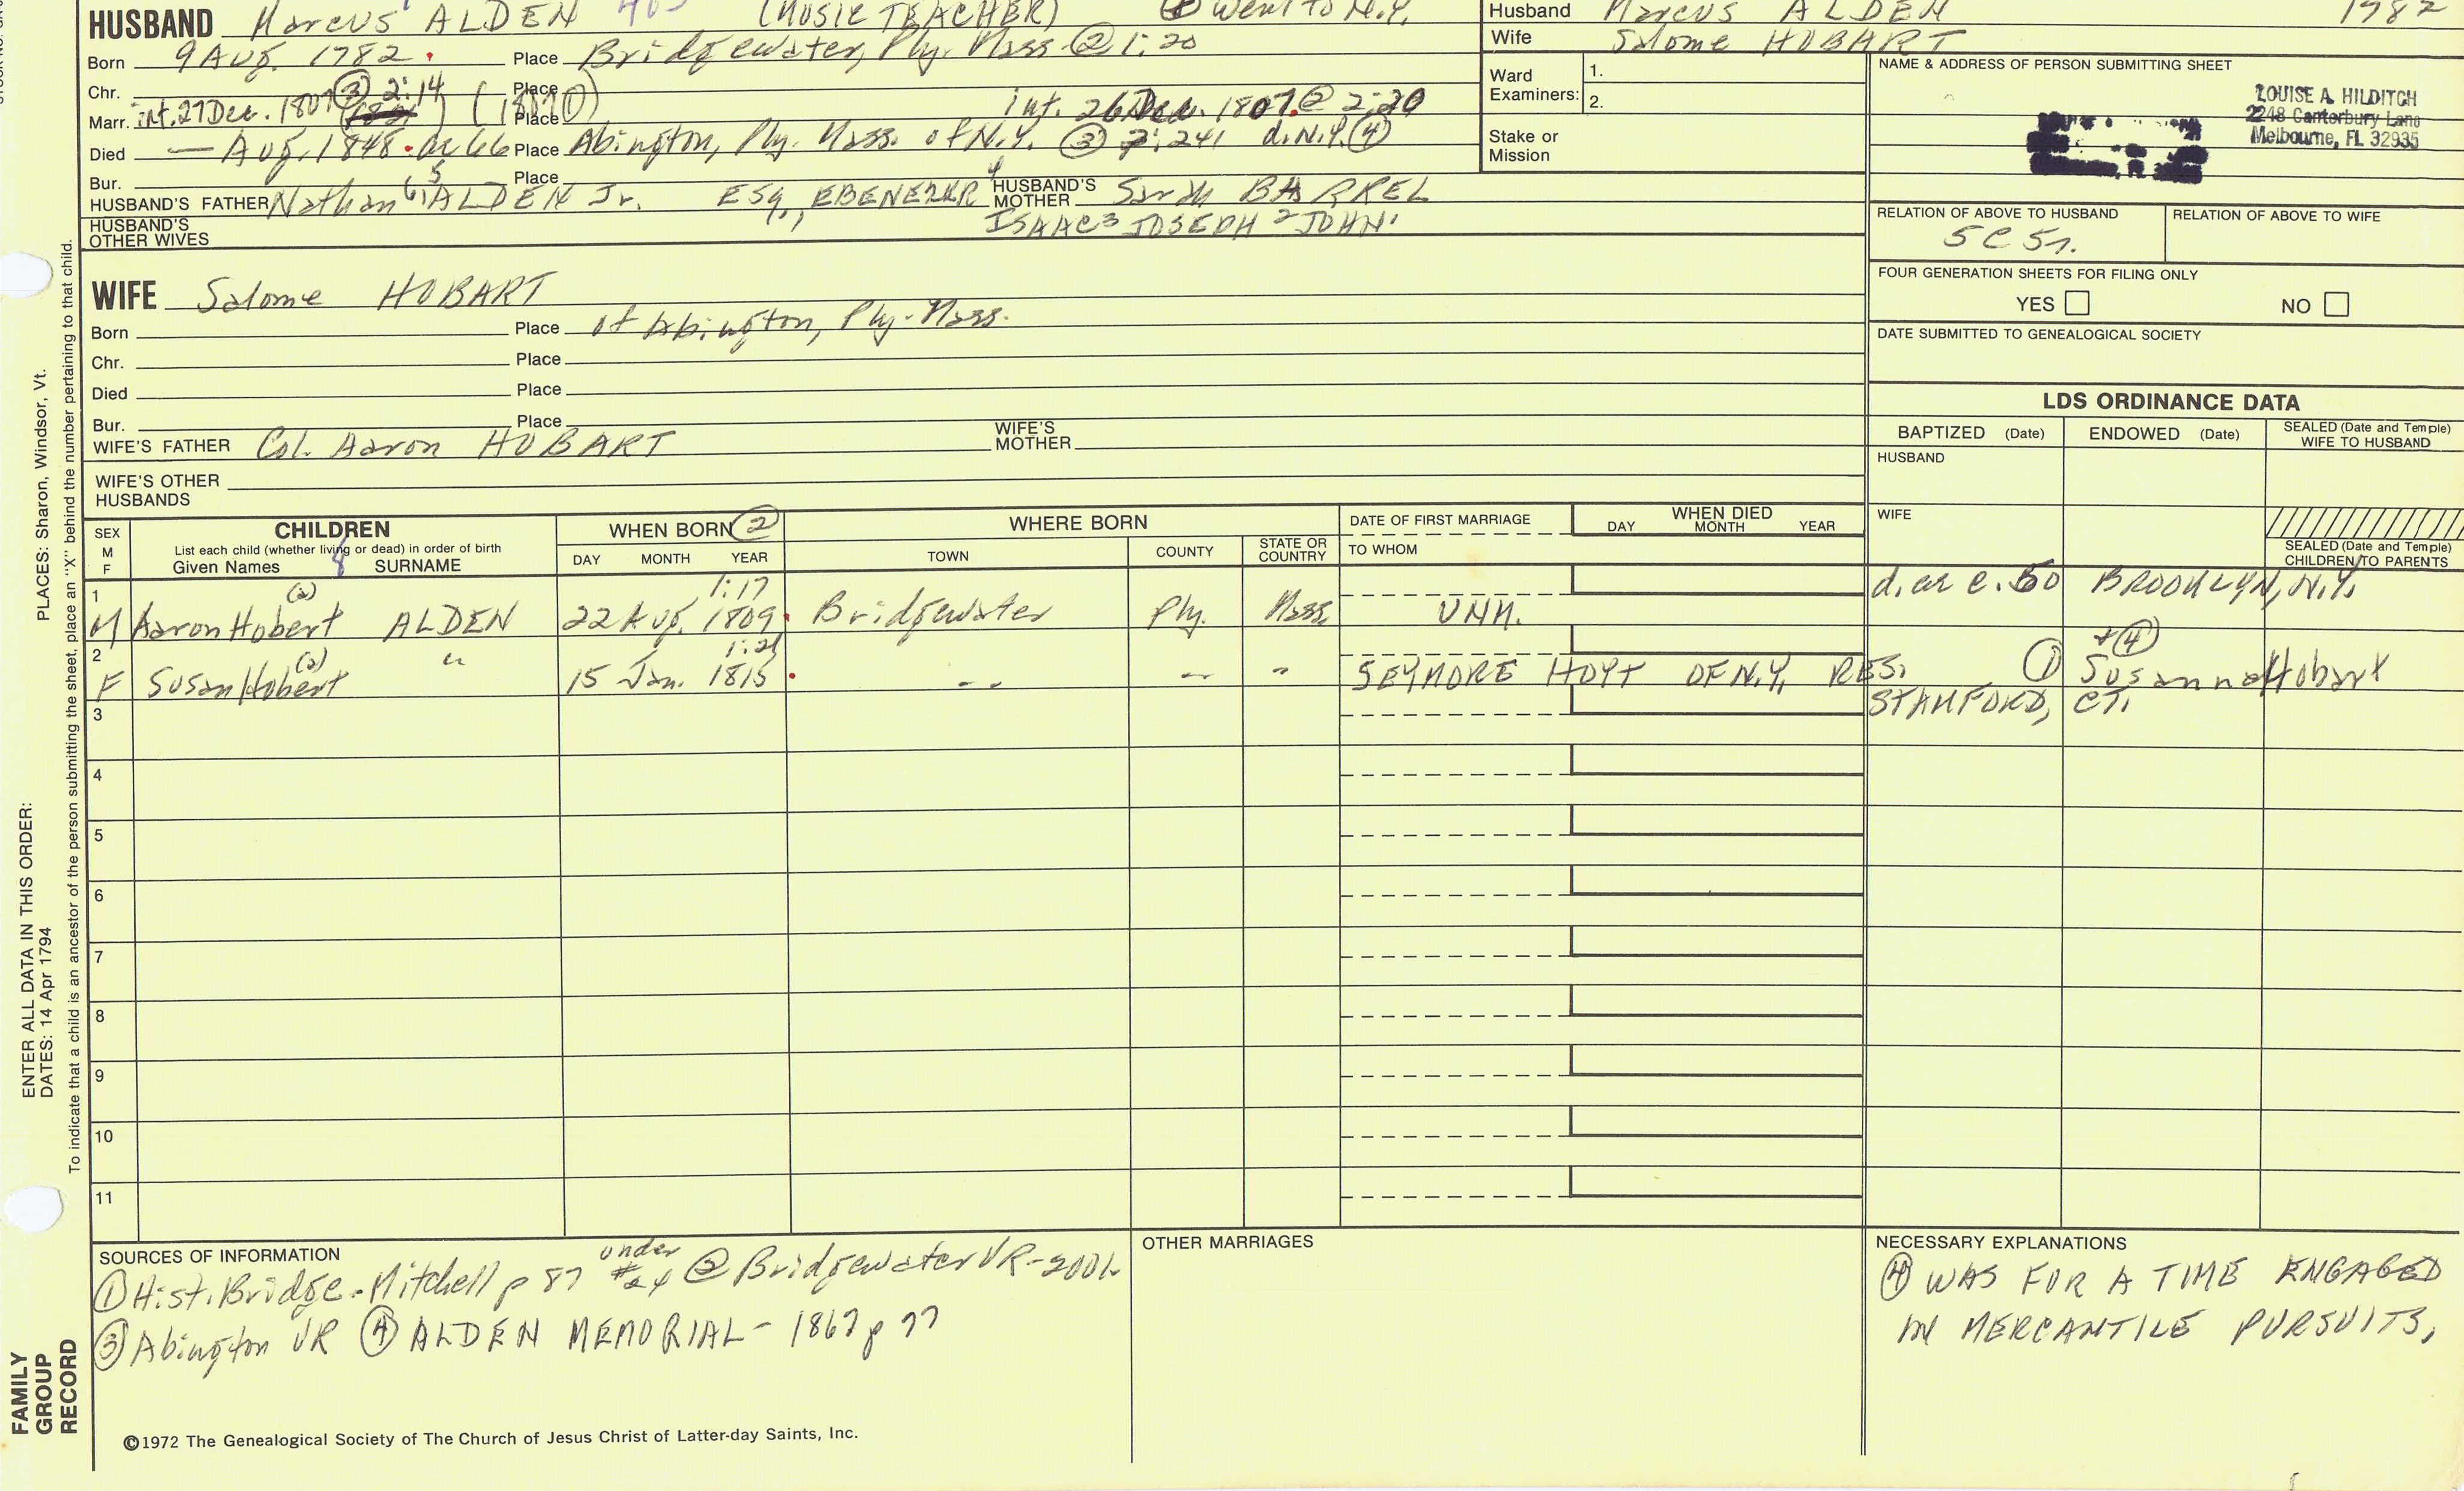 HUSBAND Marcus ALDEN (MUSIC TEACHER) Went to N.Y.
Born 9 Aug. 1782. Place Bridgewater, Ply. Mass @ 1:20
Chr. Place
Marr. int. 27 Dec. 1807 ③ 2:14 Place int. 26 Dec. 1807. ② 2:20
Died — Aug. 1848. ae 66 Place Abington, Ply. Mass. of N.Y. ③ 2:241 d. N.Y. ④
Bur. Place
HUSBAND'S FATHER Nathan ALDEN Jr. ESq., EBENEZER 4 HUSBAND'S MOTHER Sarah BARREL
HUSBAND'S OTHER WIVES ISAAC 3 JOSEPH 2 JOHN 1
Husband Marcus ALDEN 1782
Wife Salome HOBART
Ward Examiners: 1.
2.
Stake or Mission
NAME & ADDRESS OF PERSON SUBMITTING SHEET
LOUISE A. HILDITCH
2248 Canterbury Lane
Melbourne, FL 32935
RELATION OF ABOVE TO HUSBAND RELATION OF ABOVE TO WIFE
5C 5r.
FOUR GENERATION SHEETS FOR FILING ONLY
YES NO
DATE SUBMITTED TO GENEALOGICAL SOCIETY
WIFE Salome HOBART
Born Place of Abington, Ply. Mass.
Chr. Place
Died Place
Bur. Place
WIFE'S FATHER Col. Aaron HOBART WIFE'S MOTHER
WIFE'S OTHER HUSBANDS
LDS ORDINANCE DATA
BAPTIZED (Date) ENDOWED (Date) SEALED (Date and Temple) WIFE TO HUSBAND
HUSBAND
WIFE
SEALED (Date and Temple) CHILDREN TO PARENTS
SEX M F CHILDREN WHEN BORN ② WHERE BORN DATE OF FIRST MARRIAGE WHEN DIED
List each child (whether living or dead) in order of birth
Given Names SURNAME DAY MONTH YEAR TOWN COUNTY STATE OR COUNTRY TO WHOM DAY MONTH YEAR
1 (2) 1:17 d. ae c. 50 BROOKLYN, N.Y.
M Aaron Hobert ALDEN 22 Aug. 1809. Bridgewater Ply. Mass. UNM.
2 (2) " 1:21 + ④
F Susan Hobert 15 Jan. 1815. " " " SEYMORE HOYT OF N.Y. RES. ① Susanna Hobart
3 STAMFORD, CT.
4
5
6
7
8
9
10
11
SOURCES OF INFORMATION
① Hist. Bridge. Mitchell p 87 under #24 ② Bridgewater VR-2001.
③ Abington VR ④ ALDEN MEMORIAL - 1867 p 77
OTHER MARRIAGES
NECESSARY EXPLANATIONS
④ WAS FOR A TIME ENGAGED
IN MERCANTILE PURSUITS,
©1972 The Genealogical Society of The Church of Jesus Christ of Latter-day Saints, Inc.
FAMILY GROUP RECORD
ENTER ALL DATA IN THIS ORDER:
DATES: 14 Apr 1794
PLACES: Sharon, Windsor, Vt.
To indicate that a child is an ancestor of the person submitting the sheet, place an "X" behind the number pertaining to that child.